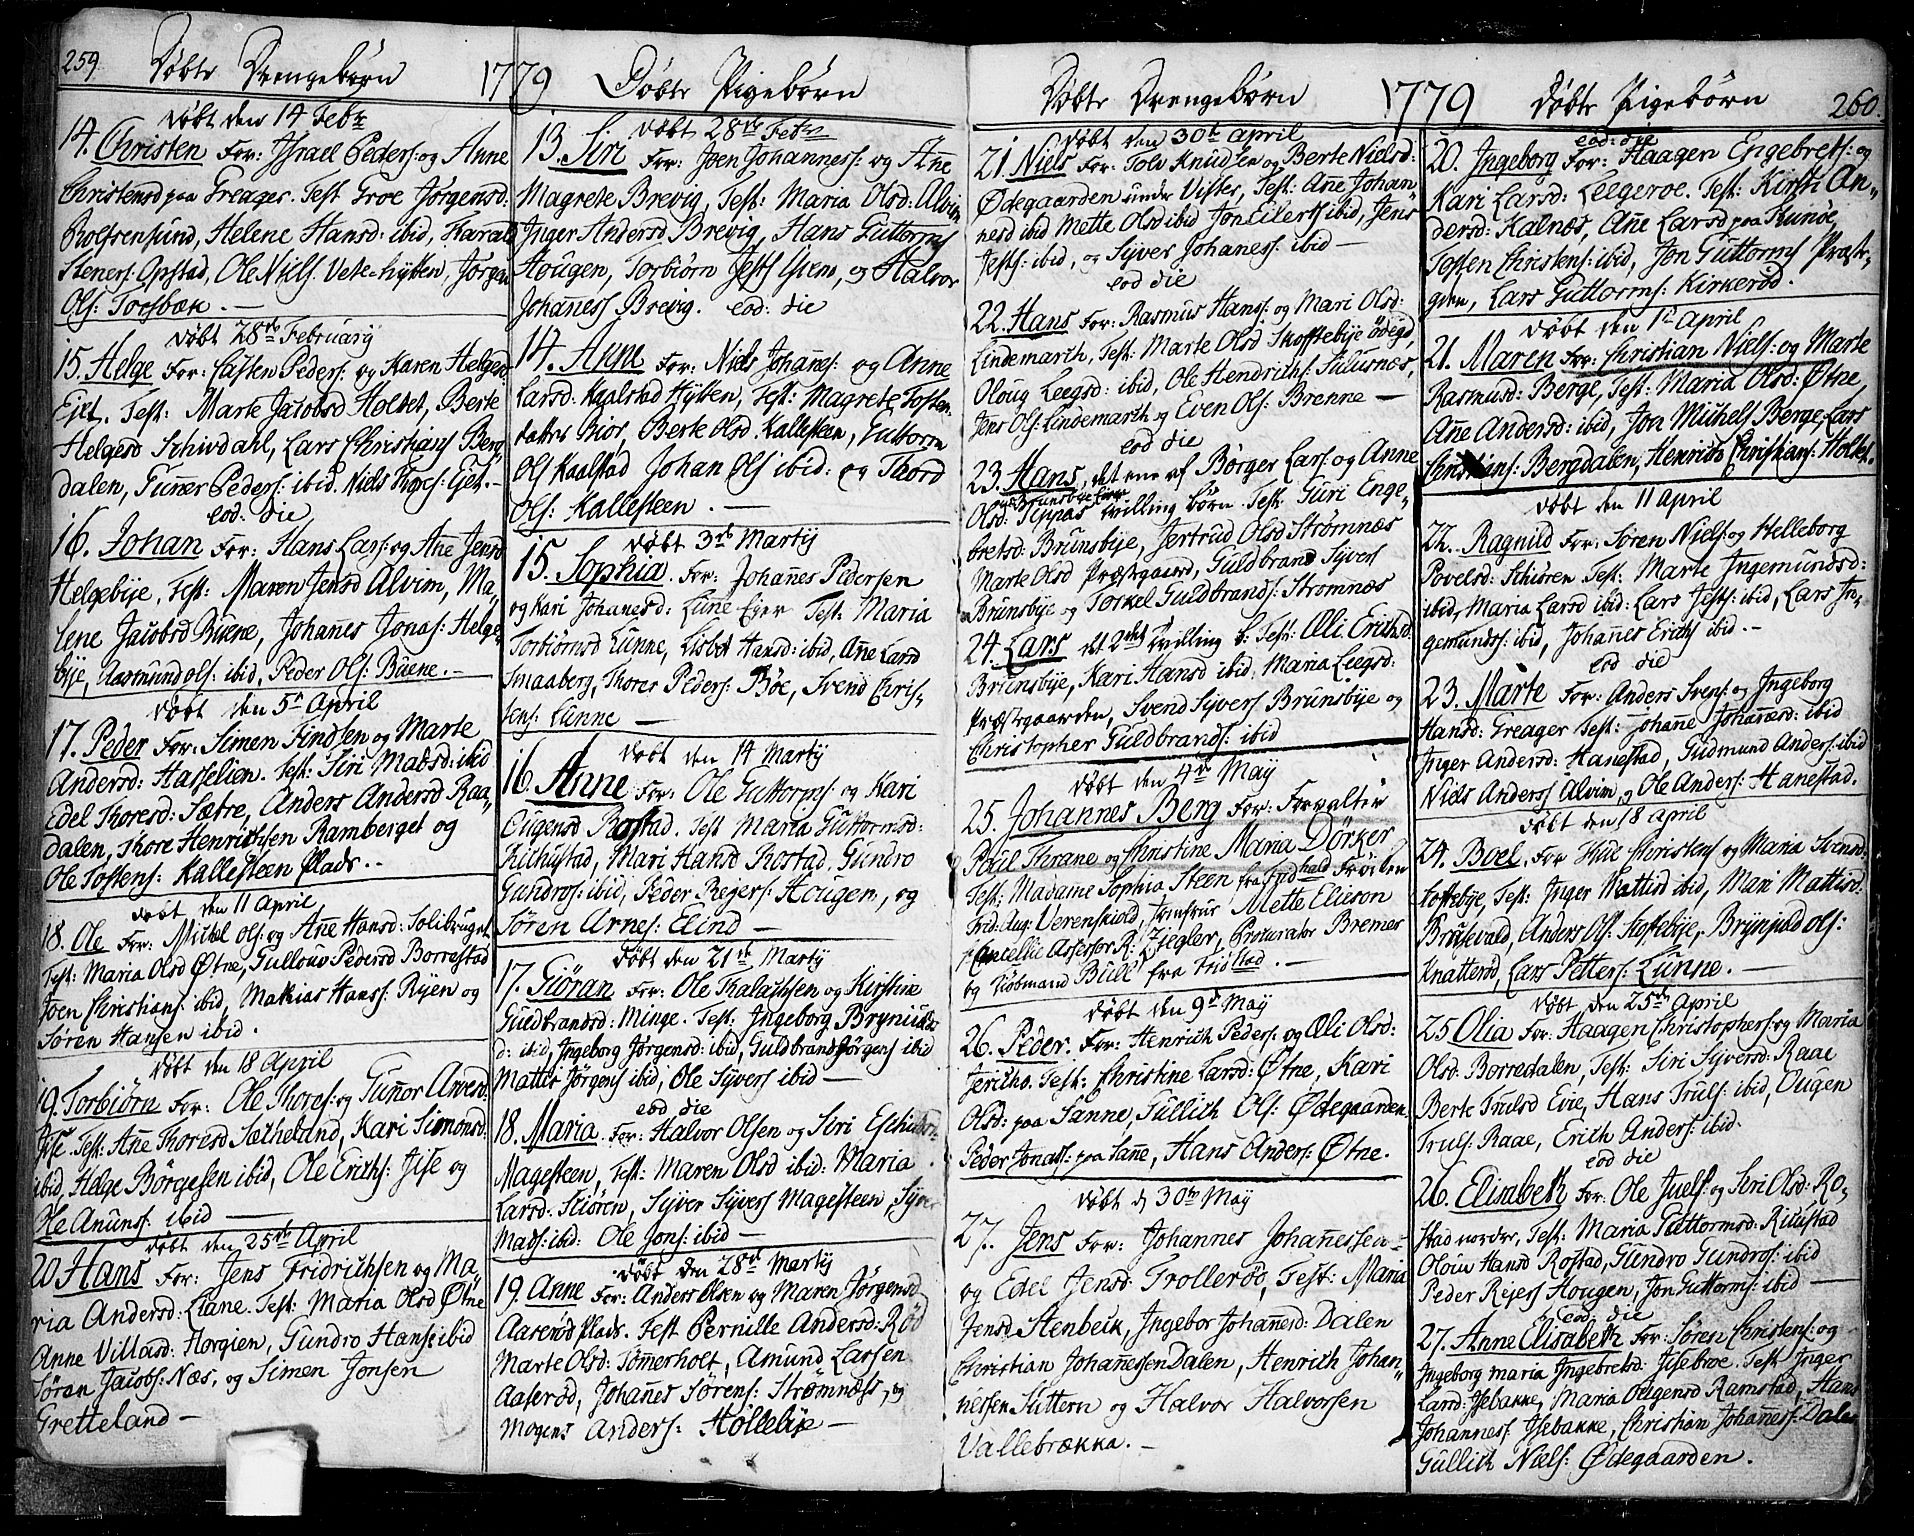 259. Døbte Drengebørn 1779 Døbte Pigebørn
Døbt den 14 Febr
14. Christen For: Israel Peders: og Anne
Christensd paa Greager. Test Groe Jørgensd:
Rolfsensund, Helene Hansd: ibid, Harald
Steners: Opstad, Ole Niels: Vete-hytten, Jørgen
Ols: Torsbæk. —
Døbt 28de February
15. Helge For: Casten Peders: og Karen Helgesd:
Ejet. Test: Marte Jacobsd Holtet, Berte
Helgesd Schivdahl, Lars Christians Berg-
dalen, Gunner Peders: ibid. Niels Ejet. —
eod: die
16. Johan For: Hans Lars: og Ane Jensd
Helgebije. Test: Maren Jensd Alvim, Ma-
lene Jacobsd Buene, Johannes Jonas: Helge-
bije, Aasmund Ols: ibid, Peder Ols: Buene. —
Døbt den 5t April
17. Peder For: Simen Findsen og Marte
Andersd: Hasselien. Test: Siri Madsd: ibid
Edel Thoresd: Sætre, Anders Andersd Raa-
dalen, Thore Henrichsen Ramberget og
Ole Tostens: Kallesteen Plads. —
Døbt den 11 April
18. Ole For: Michel Ols: og Ane Hansd: Solibruget
Test: Maria Olsd Øtne, Gullouv Pedersd Borrestad
Joen Christians: ibid, Mathias Hanss: Ryen og
Søren Hansen ibid.
Døbt den 18 April
19. Torbiørn For: Ole Thores: og Gunnor Arvesd:
Jise. Test: Ane Thoresd Sætheland, Kari Simonsd:
ibid, Helge Børgesen ibid, Ole Erichs: Jise og
Ole Amuns: ibid —
Døbt den 25de April
20 Hans For: Jens Fridrichsen og Ma-
ria Andersd: Liane. Test: Maria Olsd Øtne
Anne Villasd: Horgien, Gundro Hans: ibid
Søran Jacobs: Næs, og Simen Jonsen
Gretteland —
Døbt 28de Febr
13. Siri For: Joen Johanness: og Ane
Magrete Brevig, Test: Maria Olsd: Alvim
Inger Andersd Brevig, Hans Guttorms
Hougen, Torbiørn Jests Grens, og Halvor
Johaness Brevig. eod: die
14. Anne For: Niels Johaness: og Anne
Larsd: Kaalstad Hytten, Test: Magrete Tosten-
datter Bior, Berte Olsd. Kallesteen, Guttorm
Ols Kaalstad Johan Ols ibid: og Thord
Ols: Kallesteen. —
Døbt 3de Martij
15. Sophia. For: Johannes Pedersen
og Kari Johanesd: Lune Ejer Test: Maria
Torbiørnsd Lunne, Lisbet Hansd: ibid, Ane Larsd
Smaaberg, Thores Peders: Bøe, Svend Chris-
tens: Lunne —
Døbt den 14 Martij
16. Anne For: Ole Guttorms: og Kari
Eugensd Rostad. Test Maria Guttormsd:
Richustad, Mari Hansd Rostad, Gundro
Gundros: ibid, Peder Regers: Hougen, og
Søren Arnes: Elind —
Døbt den 21de Martij
17. Giøran For: Ole Thalachsen og Kirstine
Guldbrandsd: Minge. Test. Ingeborg Bryniulfs-
d: ibid, Ingeborg Jørgensd: ibid, Guldbrand Jørgens ibid
Mattis Jørgens ibid, Ole Syvers ibid —
eod die
18. Maria. For: Halvor Olsen og Siri
Magesteen, Test: Maren Olsd ibid: Maria
Larsd: Skiören, Syver Syvers Magesteen, Syver
Mads: ibid: Ole Jons: ibid —
Døbt den 28de Martij
19. Anne For: Anders Olsen og Maren Jørgensd
Aaserød Plads. Test Pernille Andersd: Rød
Marte Olsd: Tømmerholt, Amund Larsen
Aaserød, Johanes Sørens: Strømnæss, og
Mogens Anders: Hollebije —
Døbte Drengebørn 1779 Døbte Pigebørn 260.
Døbt den 30te April
21. Niels For: Tolv Knudsen og Berte Nielsd:
Ødegaarden under Vister, Test: Ane Johan-
nesd ibid Mette Olsd ibid Jon Eilerts ibid, Jens
Jests: ibid, og Syver Johanes: ibid —
eod die
22. Hans For: Rasmus Hans: og Mari Olsd:
Lindemarch, Test: Marte Olsd Skoftebije ødegd,
Oloug Leegsd: ibid, Ole Hendrichs: Tulusnæs,
Jens Ols: Lindemarch og Even Ols: Brenne —
eod die
23. Hans, det ene af Børger Lars: og Anne
Olsd: Teppas Brunsbye Ejer tvilling børn. Test: Guri Enge-
bretsd: Brunsbije, Jertrud Olsd Strømnæs
Marte Olsd Præstgaard, Guldbrand Syvers
Brunsbije og Torkel Guldbrands: Stromnæs
24. Lars det 2det Tvilling b: Test: Øli Erichsd:
Brunsbije, Kari Hansd ibid: Maria Leegsd:
Præstgaarden, Svend Syvers Brunsbije og
Christopher Guldbrands: ibid
Døbt den 4de May
25. Johannes Berg For: Forvalter
Paul Thrane og Christine Maria Dörker
Test: Madame Sophia Steen fra Fridhald Frøiken
Frid: Aug: Verenskiold, Jomfrue Mette Elieson
Cancellie Assessor R: Ziegler, Procurator Bremer
og Kiøbmand Bull fra Fridstad. —
Døbt den 9de May
26. Peder. For: Henrich Peders: og Øli Olsd:
Jericho. Test: Christine Larsd: Øtne, Kari
Olsd: paa Sanne, Gullich Ols: Ødegaarden
Peder Jonas: paa Sane, Hans Anders: Øtne.
Døbt d 30te May
27. Jens For: Johannes Johannessen
og Edel Jensd: Trollerød, Test: Maria
Jensd Stenbeik, Ingebor Johanesd: Dalen
Christian Johanessen Dalen, Henrich Johan-
nessen Suttern og Halvor Halvorsen
Vallebrækka. —
eod: die
20. Ingeborg For: Haagen Engebrets: og
Kari Larsd: Leegeroe. Test: Kirsti An-
dersd: Kalnæs, Ane Larsd paa Thunøe,
Tosten Christens: ibid, Jon Guttorms Præst-
gien, Lars Guttorms: Kirkerød.
Døbt den 1te April
21. Maren For: Christian Niels: og Marte
Rasmusd: Berge, Test: Maria Olsd: Øtne,
Ane Andersd: ibid, Jon Michels Berge, Lars
Christians: Bergdalen, Henrich Christians: Holtet.
Døbt den 11 April
22. Ragnild For: Søren Niels: og Helleborg
Povelsd: Schiören Test: Marte Ingemundsd:
ibid, Maria Larsd ibid: Lars Jests: ibid, Lars In-
gemunds: ibid, Johannes Erichs ibid. —
eod die
23. Marte For: Anders Svens: og Ingeborg
Hansd: Greager Test: Johane Johanesd: ibid
Inger Andersd: Hanestad, Gudmund Anders: ibid
Niels Anderss Alvim, og Ole Anders: Hanestad.
Døbt den 18 April
24. Boel, For Christens: og Maria Svensd:
Test: Inger Mattisd ibid, Mari Mattisd:
Brusevald, Anders Ols: Skoftebije, Brynjulf Ols:
Knatterød, Lars Petters: Lunne. —
Døbt den 25de April
25 Olia For: Haagen Christophers: og Maria
Olsd: Borredalen, Test: Siri Syversd: Raae
Berte Trulsd Evie, Hans Truls: ibid, Ougen
Truls: Raae, Erich Anders: ibid.
eod die
26. Elisabeth For: Ole Juels: og Siri Olsd: Ro-
stad nordre, Test: Maria Guttormsd: Richustad
Oloin Hansd Rostad, Gundro Gundros: ibid
Peder Rejers Hougen, Jon Guttorms: ibid —
eod die
27. Anne Elisabeth For: Søren Christens: og
Ingeborg Maria Ingebretsd: Jisebroe. Test Inger
Larsd: Isebakke, Maria Ougensd Ramstad, Hans
Johannes: Jsebakke, Christian Johannes: Dalen
Gullich Niels: Ødegaarden.